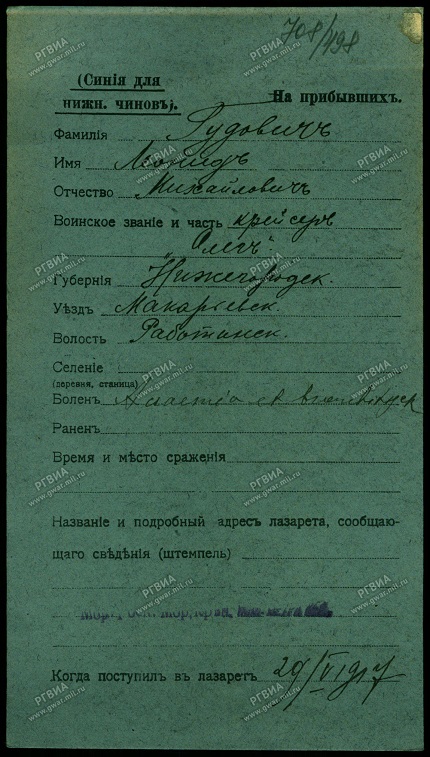 708/498
(Синія для
нижн. чиновъ).
На прибывшихъ.
Фамилія Гудовичъ
Имя Леонидъ
Отчество Михайловичъ
Воинское званіе и часть крейсеръ
"Олегъ".
Губернія Нижегородск.
Уѣздъ Макарьевск.
Волость Работкинск.
Селеніе
(деревня, станица)
Боленъ
Раненъ
Время и мѣсто сраженія
Названіе и подробный адресъ лазарета, сообщаю-
щаго свѣдѣнія (штемпель)
Когда поступилъ въ лазаретъ 29/V 1917
РГВИА
www.gwar.mil.ru